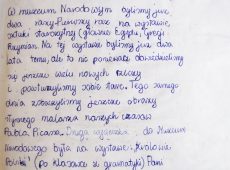 W muzeum Narodowym byliśmy już
dwa razy. Pierwszy raz na wystawie
sztuki starożytnej (głównie Egiptu, Grecji i
Rzymian. Na tej wystawie byliśmy już dwa
lata temu, ale to nie ponieważ dowiedzieliśmy
się jeszcze wielu nowych rzeczy
i powtórzyliśmy sobie stare. Tego samego
dnia zobaczyliśmy jeszcze obrazy
słynnego malarza naszych czasów
Pabla Picassa. Druga wycieczka do Muzeum
Narodowego była na wystawie „Królowie
Polski” (po klasówce z gramatyki) Pani